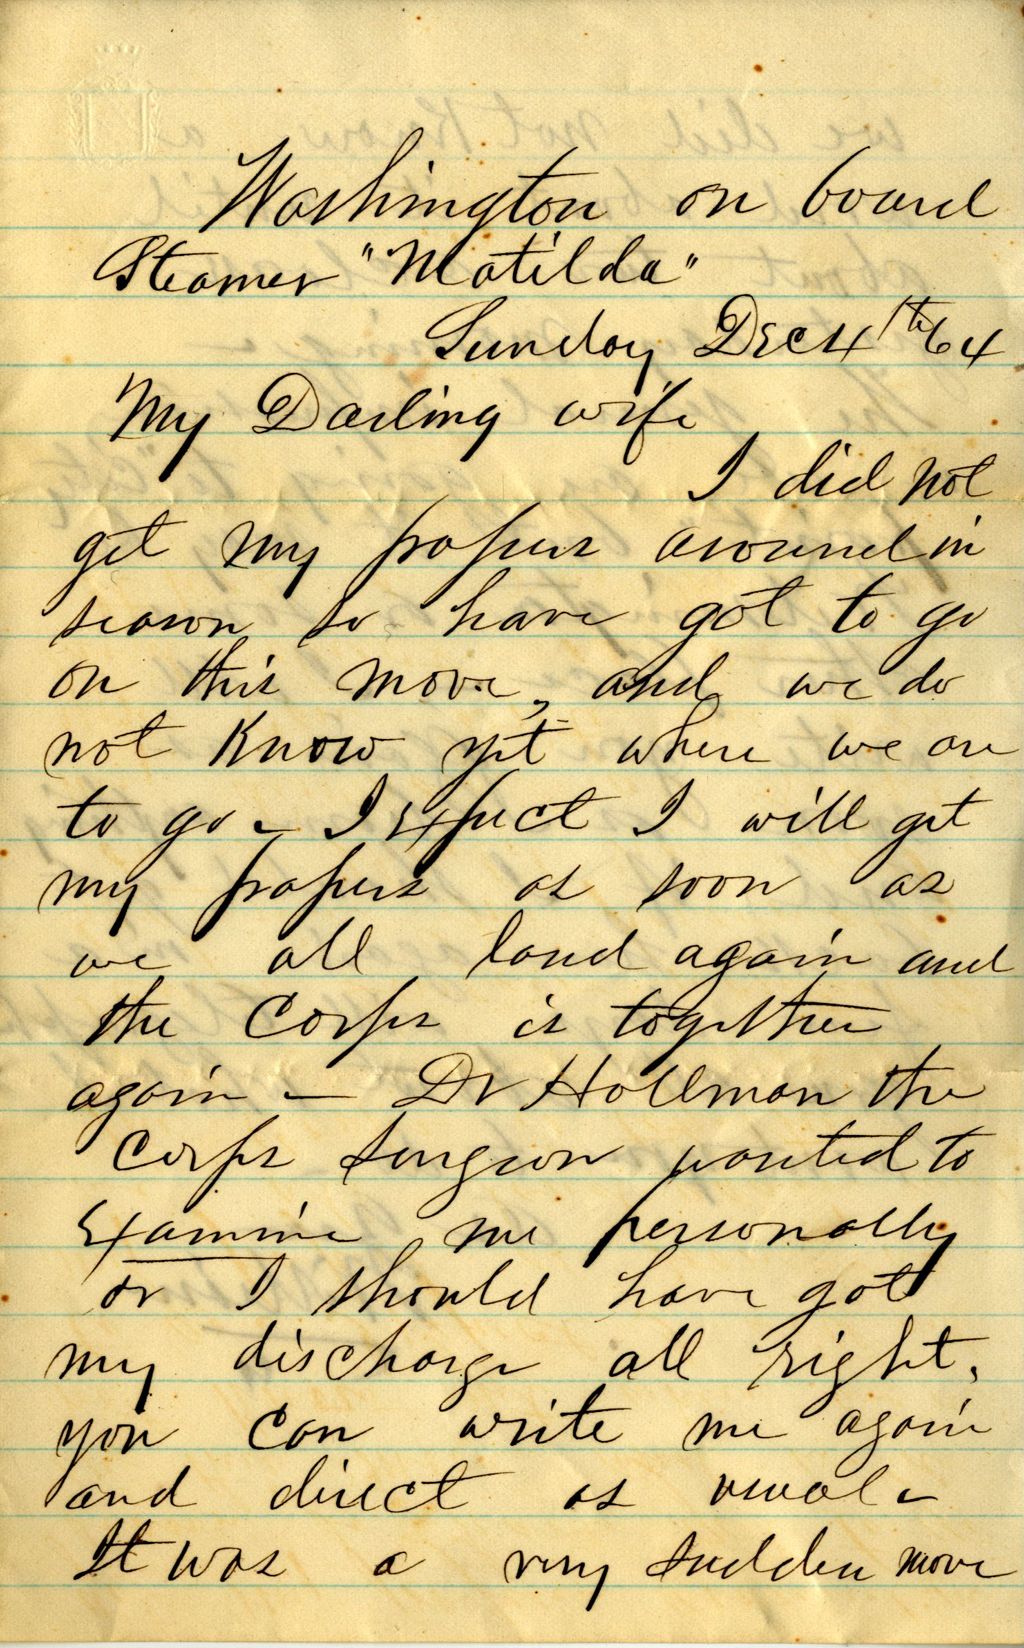 Washington on board
Steamer "Matilda"
Sunday Dec 4th 64
My Darling wife
I did not
get my papers around in
season so have got to go
on this move, and we do
not know yet where we are
to go - I expect I will get
my papers as soon as
we all land again and
the Corps is together
again - Dr Hollman the
Corps Surgeon wanted to
Examine me personally
or I should have got
my discharge all right.
you can write me again
and direct as usual -
It was a very sudden move